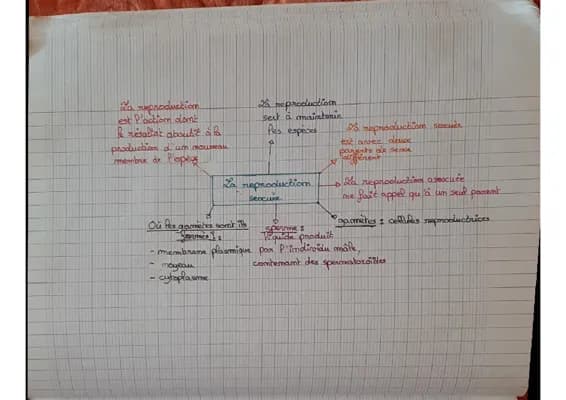 La reproduction
est l'action dont
le résultat aboutit à la
production d'un nouveau
membre de l'espèce
La reproduction
sert à maintenir
les espèces
La reproduction sexuée
est avec deux
parents de sexes
différent
La reproduction sexuée
La reproduction asexuée
ne fait appel qu'à un seul parent
Où les gamètes sont ils
formés :
- membrane plasmique
- noyau
- cytoplasme
sperme :
liquide produit
par l'individu mâle,
contenant des spermatozoïdes
gamètes : cellules reproductrices